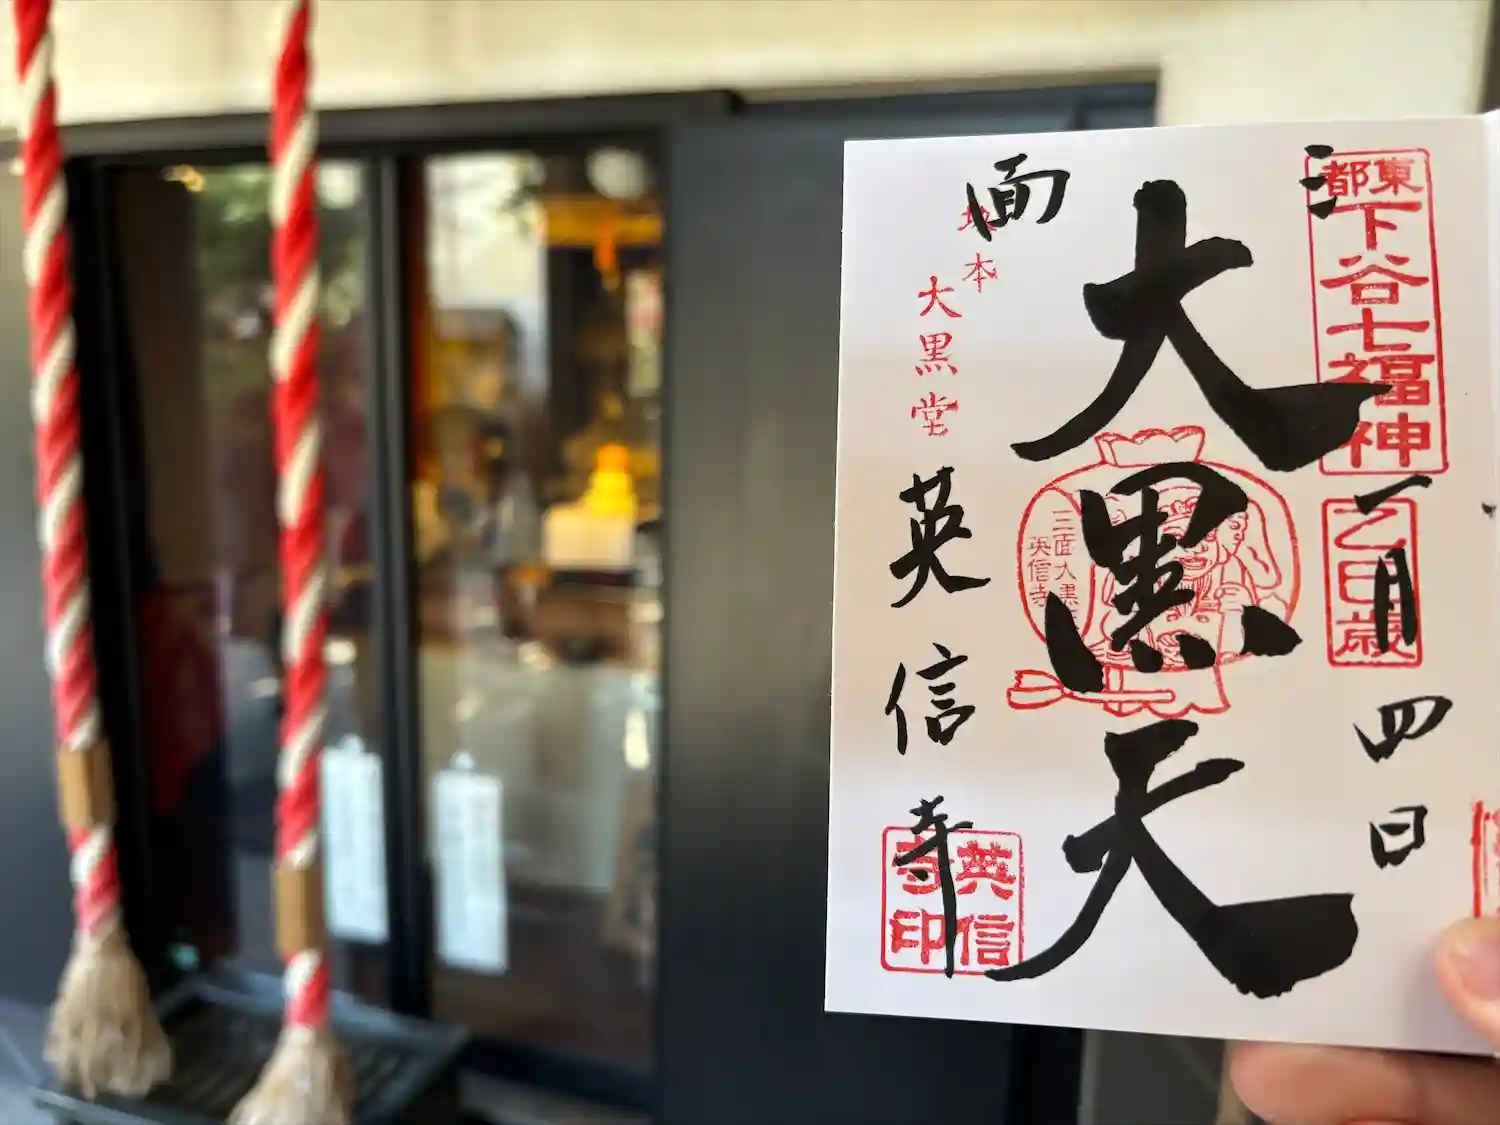 東都
下谷七福神
乙巳歳
一月四日
三面
大黒天
三面大黒
英信寺
坂本
大黒堂
英信寺
英信寺印